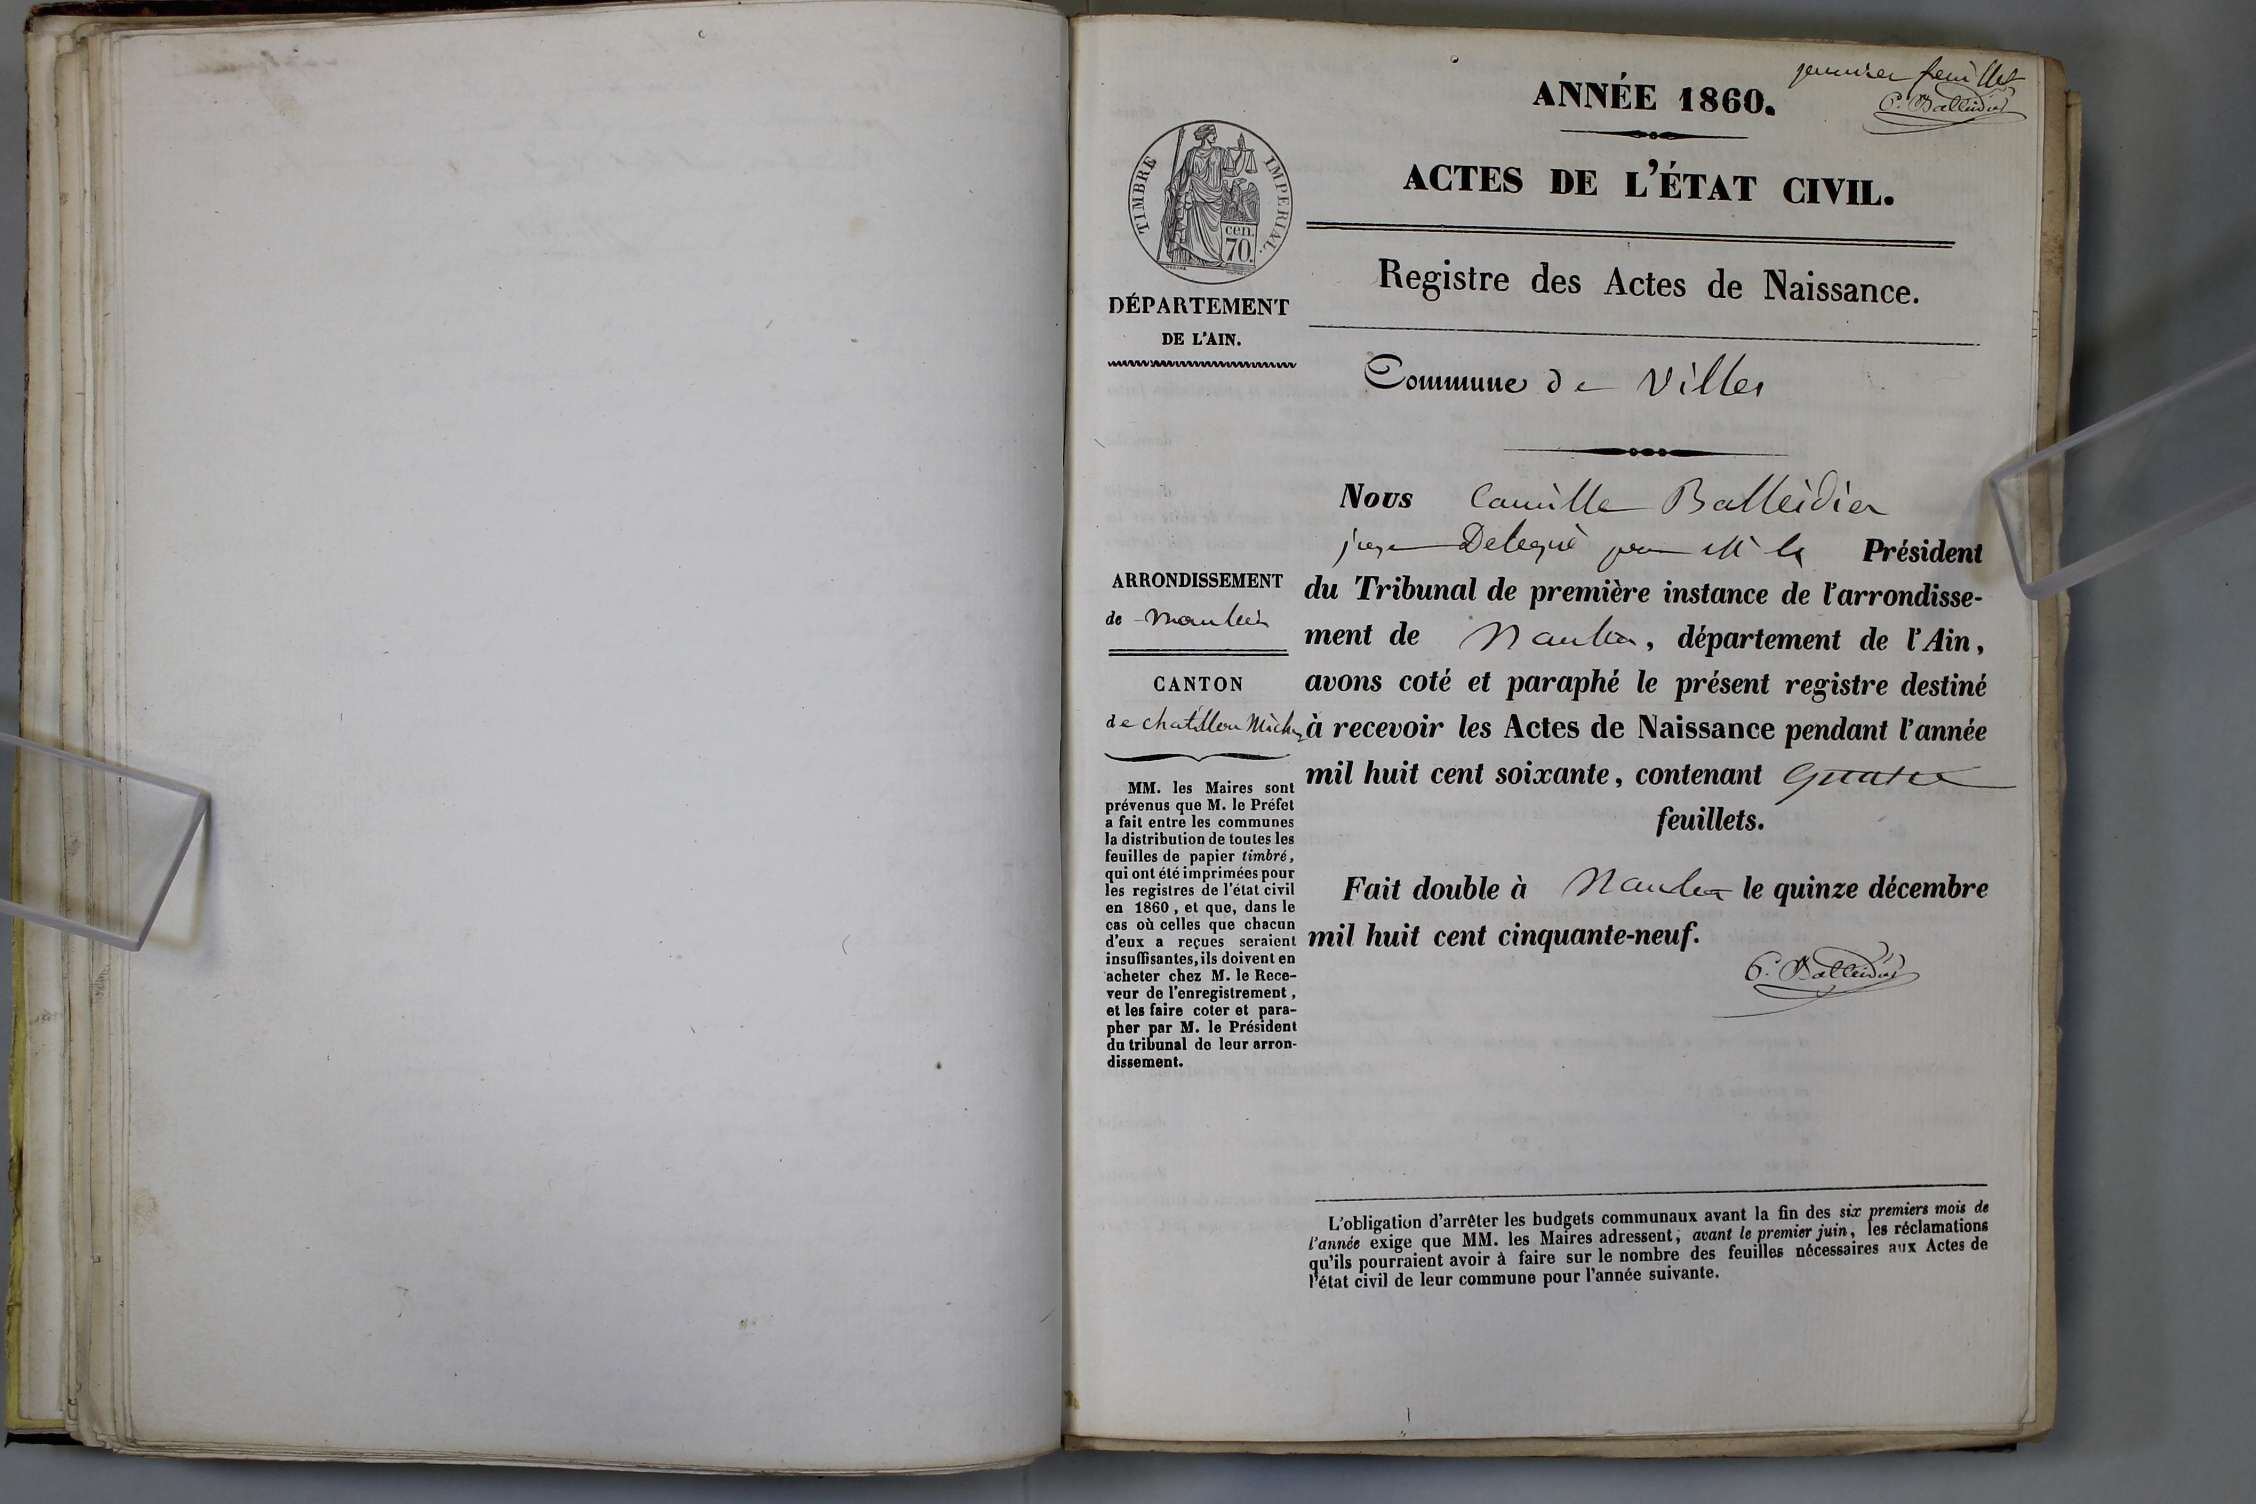 premier feuillet
C. Balleidier
ANNÉE 1860.
ACTES DE L'ÉTAT CIVIL.
TIMBRE IMPERIAL.
cen.
70.
Registre des Actes de Naissance.
DÉPARTEMENT
DE L'AIN.
Commune de Villes
Nous Camille Balleidier
juge Délégué par Mr le Président
du Tribunal de première instance de l'arrondisse-
ment de Nantua, département de l'Ain,
avons coté et paraphé le présent registre destiné
à recevoir les Actes de Naissance pendant l'année
mil huit cent soixante, contenant quatre
feuillets.
Fait double à Nantua le quinze décembre
mil huit cent cinquante-neuf.
C. Balleidier
ARRONDISSEMENT
de Nantua
CANTON
de chatillon Mich
MM. les Maires sont
prévenus que M. le Préfet
a fait entre les communes
la distribution de toutes les
feuilles de papier timbré,
qui ont été imprimées pour
les registres de l'état civil
en 1860, et que, dans le
cas où celles que chacun
d'eux a reçues seraient
insuffisantes, ils doivent en
acheter chez M. le Rece-
veur de l'enregistrement,
et les faire coter et para-
pher par M. le Président
du tribunal de leur arron-
dissement.
L'obligation d'arrêter les budgets communaux avant la fin des six premiers mois de
l'année exige que MM. les Maires adressent, avant le premier juin, les réclamations
qu'ils pourraient avoir à faire sur le nombre des feuilles nécessaires aux Actes de
l'état civil de leur commune pour l'année suivante.